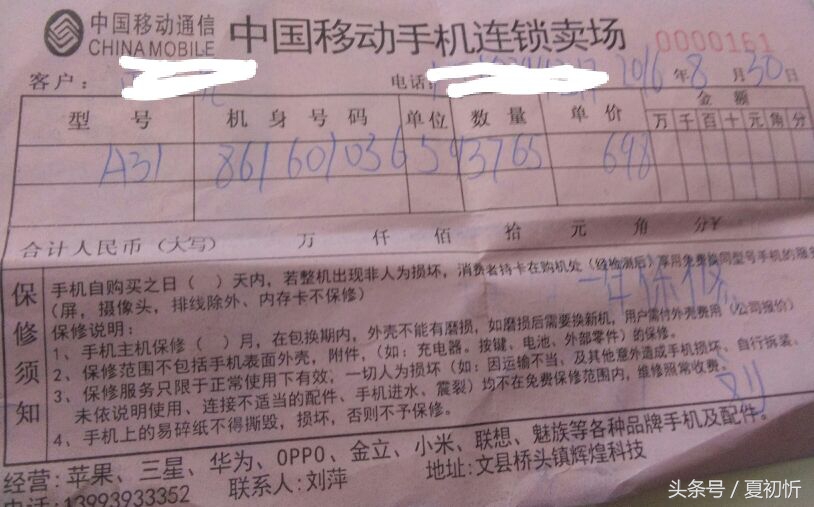 中国移动通信
CHINA MOBILE
中国移动手机连锁卖场
0000161
客户：
电话：
2016年8月30日
型号 机身号码 单位 数量 单价 金额
万千百十元角分
A31 861601036593765 698
合计人民币（大写） 万 仟 佰 拾 元 角 分￥
保修须知
手机自购买之日（ ）天内，若整机出现非人为损坏，消费者持卡在购机处（经检测后）享用免费换同型号手机的服务
（屏，摄像头，排线除外、内存卡不保修）
一年保修
保修说明：
1、手机主机保修（ ）月，在包换期内，外壳不能有磨损，如磨损后需要换新机，用户需付外壳费用（公司报价）
2、保修范围不包括手机表面外壳，附件，（如：充电器。按键、电池、外部零件）的保修。
3、保修服务只限于正常使用下有效，一切人为损坏（如：因运输不当、及其他意外造成手机损坏、自行拆装、
未依说明使用、连接不适当的配件、手机进水、震裂）均不在免费保修范围内，维修照常收费。
4、手机上的易碎纸不得撕毁，损坏，否则不予保修。
刘
经营：苹果、三星、华为、OPPO、金立、小米、联想、魅族等各种品牌手机及配件。
电话：13993933352 联系人：刘萍 地址：文县桥头镇辉煌科技
头条号／夏初忻